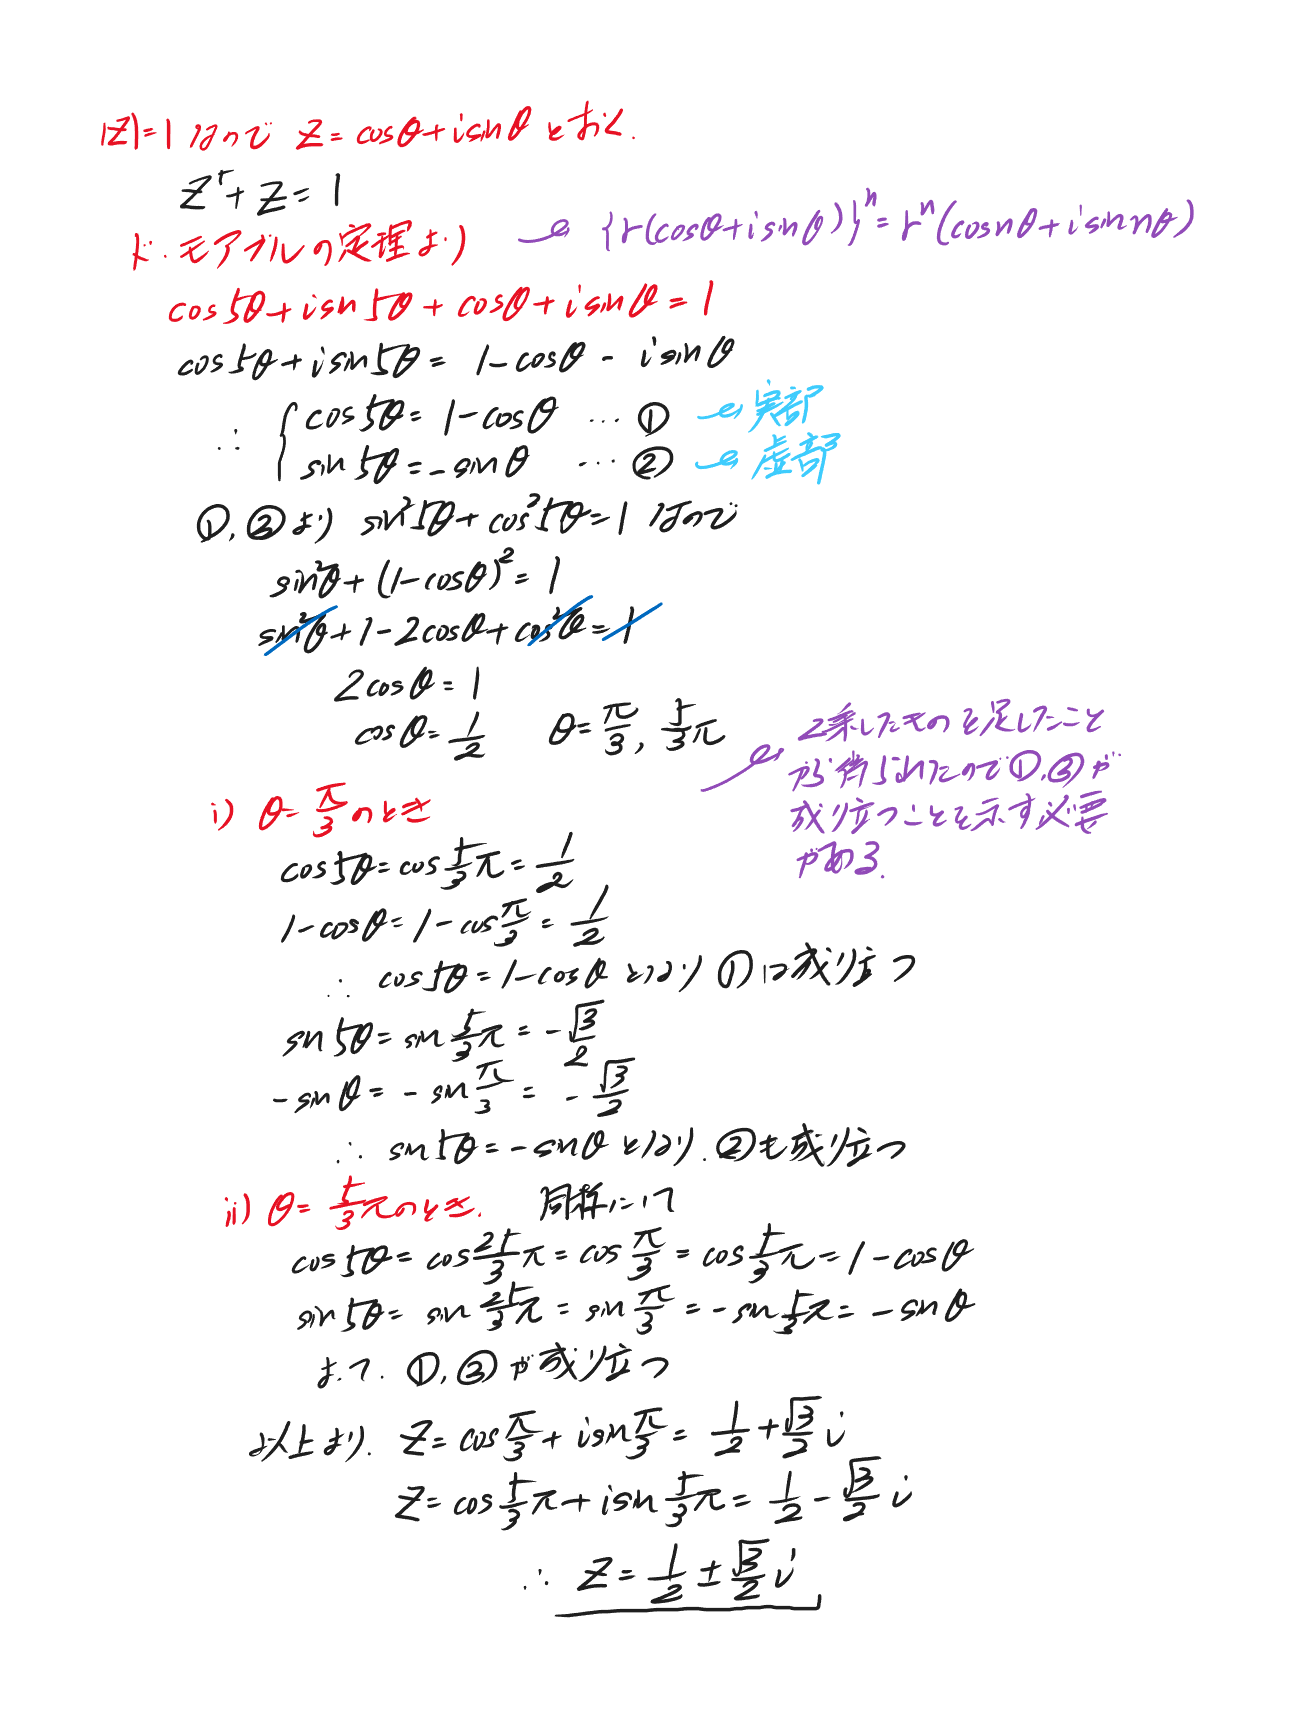 |z|=1 なので z=cosθ+isinθ とおく.
z⁵+z=1
ド・モアブルの定理より
{r(cosθ+isinθ)}ⁿ=rⁿ(cosnθ+isinnθ)
cos5θ+isin5θ+cosθ+isinθ=1
cos5θ+isin5θ=1-cosθ-isinθ
∴ { cos5θ=1-cosθ …① 実部
sin5θ=-sinθ …② 虚部
①,②より sin²5θ+cos²5θ=1 なので
sin²θ+(1-cosθ)²=1
sin²θ+1-2cosθ+cos²θ=1
2cosθ=1
cosθ=1/2 θ=π/3, 5/3π
2乗したものを足したこと
から得られたので①,②が
成り立つことを示す必要
がある.
i) θ=π/3のとき
cos5θ=cos5/3π=1/2
1-cosθ=1-cosπ/3=1/2
∴ cos5θ=1-cosθ となり ①は成り立つ
sin5θ=sin5/3π=-√3/2
-sinθ=-sinπ/3=-√3/2
∴ sin5θ=-sinθ となり. ②も成り立つ
ii) θ=5/3πのとき. 同様にして
cos5θ=cos25/3π=cosπ/3=cos5/3π=1-cosθ
sin5θ=sin25/3π=sinπ/3=-sin5/3π=-sinθ
よって. ①,②が成り立つ
以上より. z=cosπ/3+isinπ/3=1/2+√3/2i
z=cos5/3π+isin5/3π=1/2-√3/2i
∴ z=1/2±√3/2i